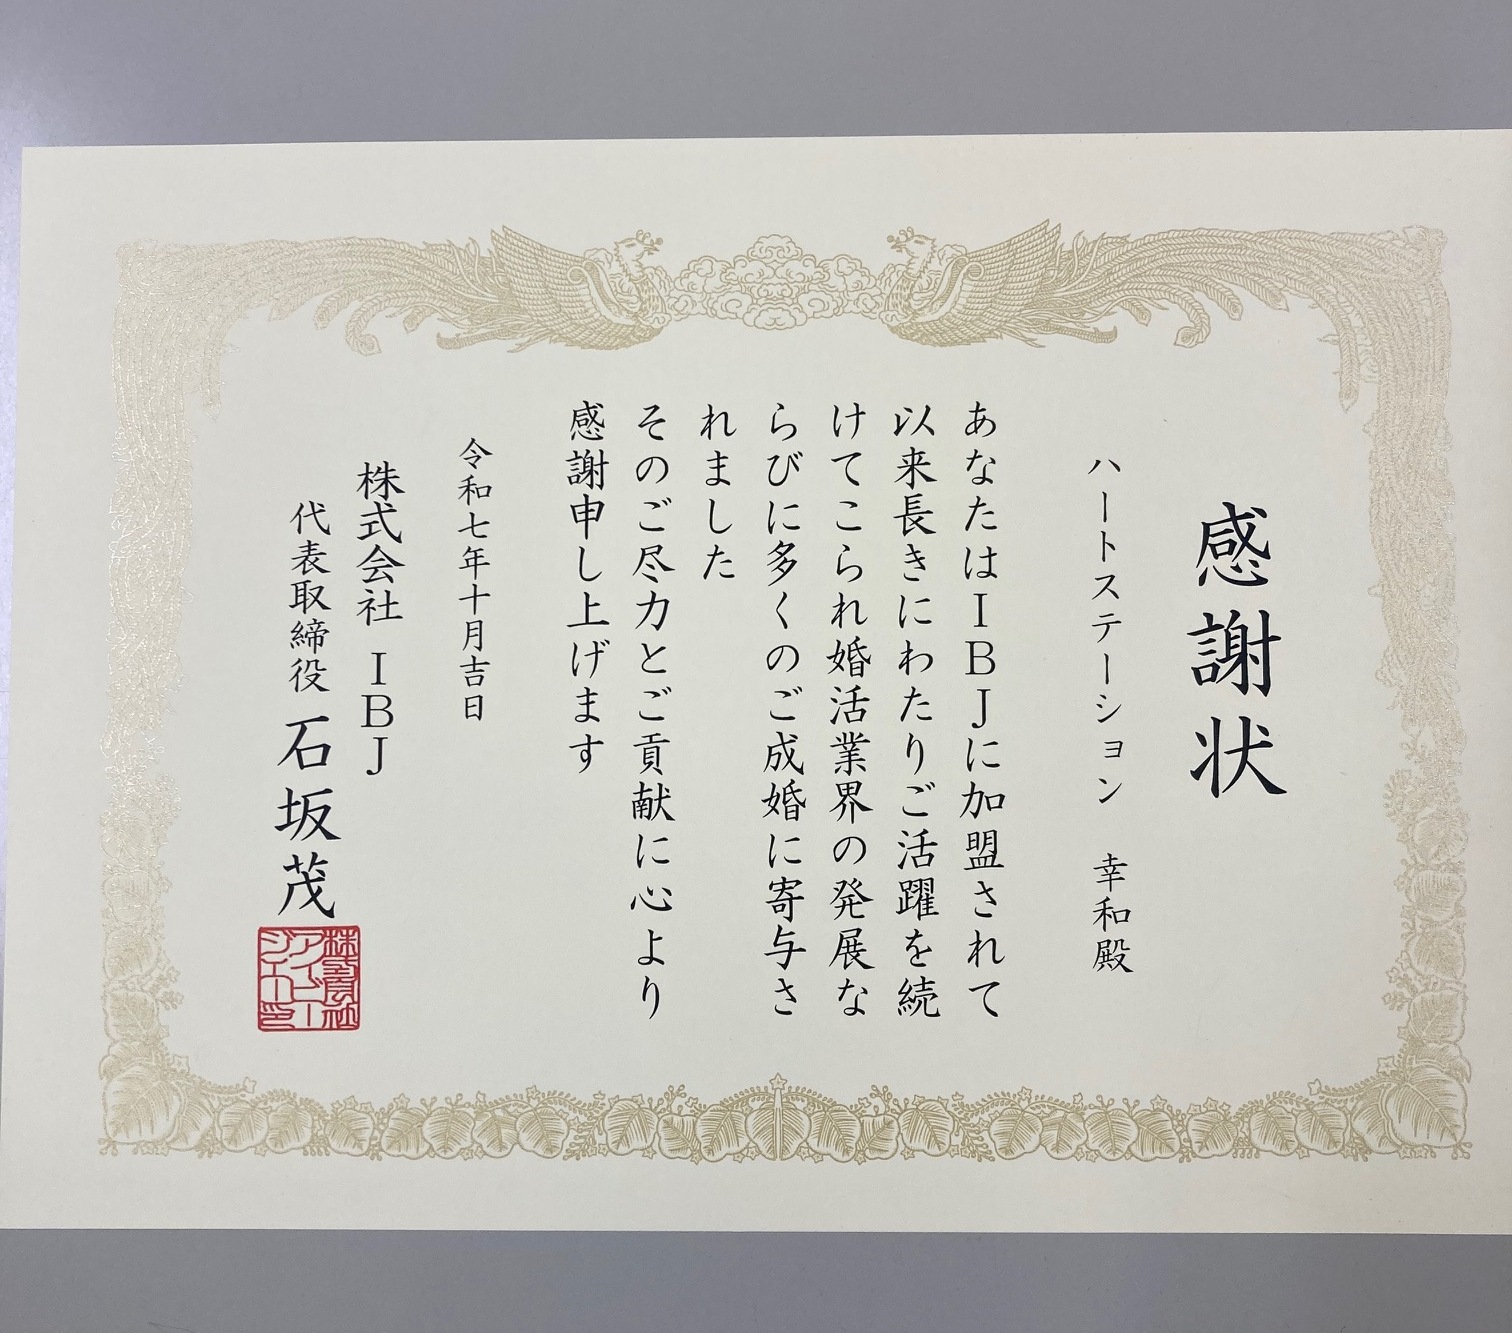 感謝状
ハートステーション 幸和殿
あなたはＩＢＪに加盟されて
以来長きにわたりご活躍を続
けてこられ婚活業界の発展な
らびに多くのご成婚に寄与さ
れました
そのご尽力とご貢献に心より
感謝申し上げます
令和七年十月吉日
株式会社 ＩＢＪ
代表取締役 石坂茂
株式会社
アイビー
ジェー印